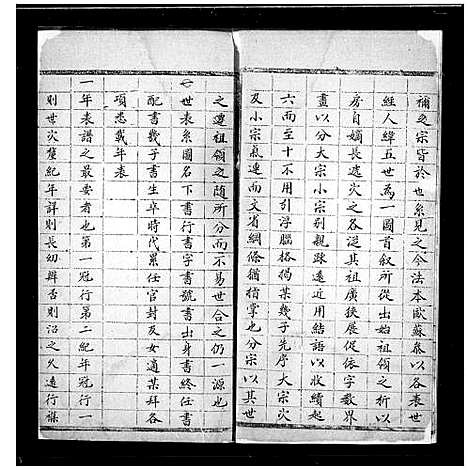 補之宗皆於世系見之今法本歐蘇參以各表世
經人緯五世為一圖首敘所從出始祖領之析以
房自嫡長處次之各從其祖廣狹展促依字數界
畫以分大宗小宗別親疎遠近用結語以收續起
六而至十不用引浮腦格揭某幾子先序大宗次
及小宗氣連而文省綱條猶指掌也分宗以其世
之遷祖領之隨所分而不易世合之仍一源也
一世表系圖名下書行書字書號書出身書終任書
配書幾子書生卒時代累任官封及女適某科各
項悉載年表
一年表譜之最要者也第一冠行第二紀年冠行一
則世次釐紀年詳則長幼辨否則沿之久遠行